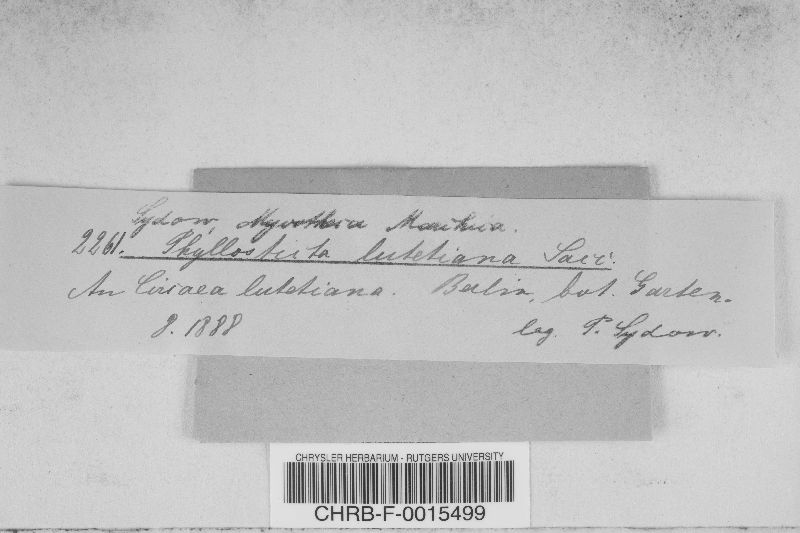 Sydow, Mycotheca Marchica.
2261. Phyllosticta lutetiana Sacc.
An Circaea lutetiana. Berlin, bot. Garten.
8. 1888 leg. P. Sydow.
CHRYSLER HERBARIUM - RUTGERS UNIVERSITY
CHRB-F-0015499